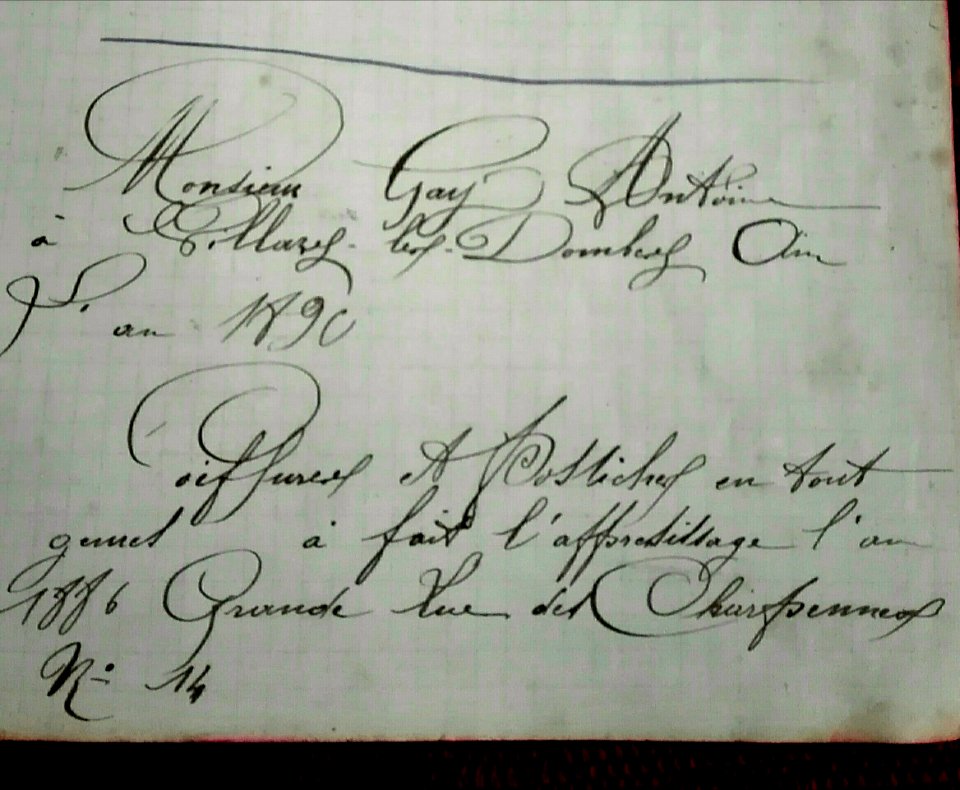 Monsieur Gay Antoine
à Villars-les-Dombes Ain
L'an 1890
Coiffures et Postiches en tout
genres à fait l'apprentissage l'an
1886 Grande Rue des Charpennes
No 14